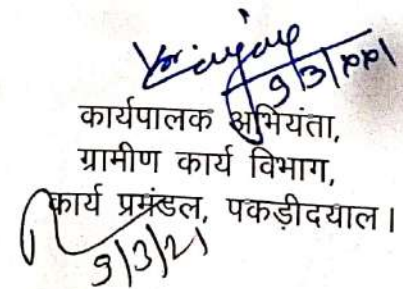 9/3/2021
कार्यपालक अभियंता,
ग्रामीण कार्य विभाग,
कार्य प्रमंडल, पकड़ीदयाल।
9/3/21